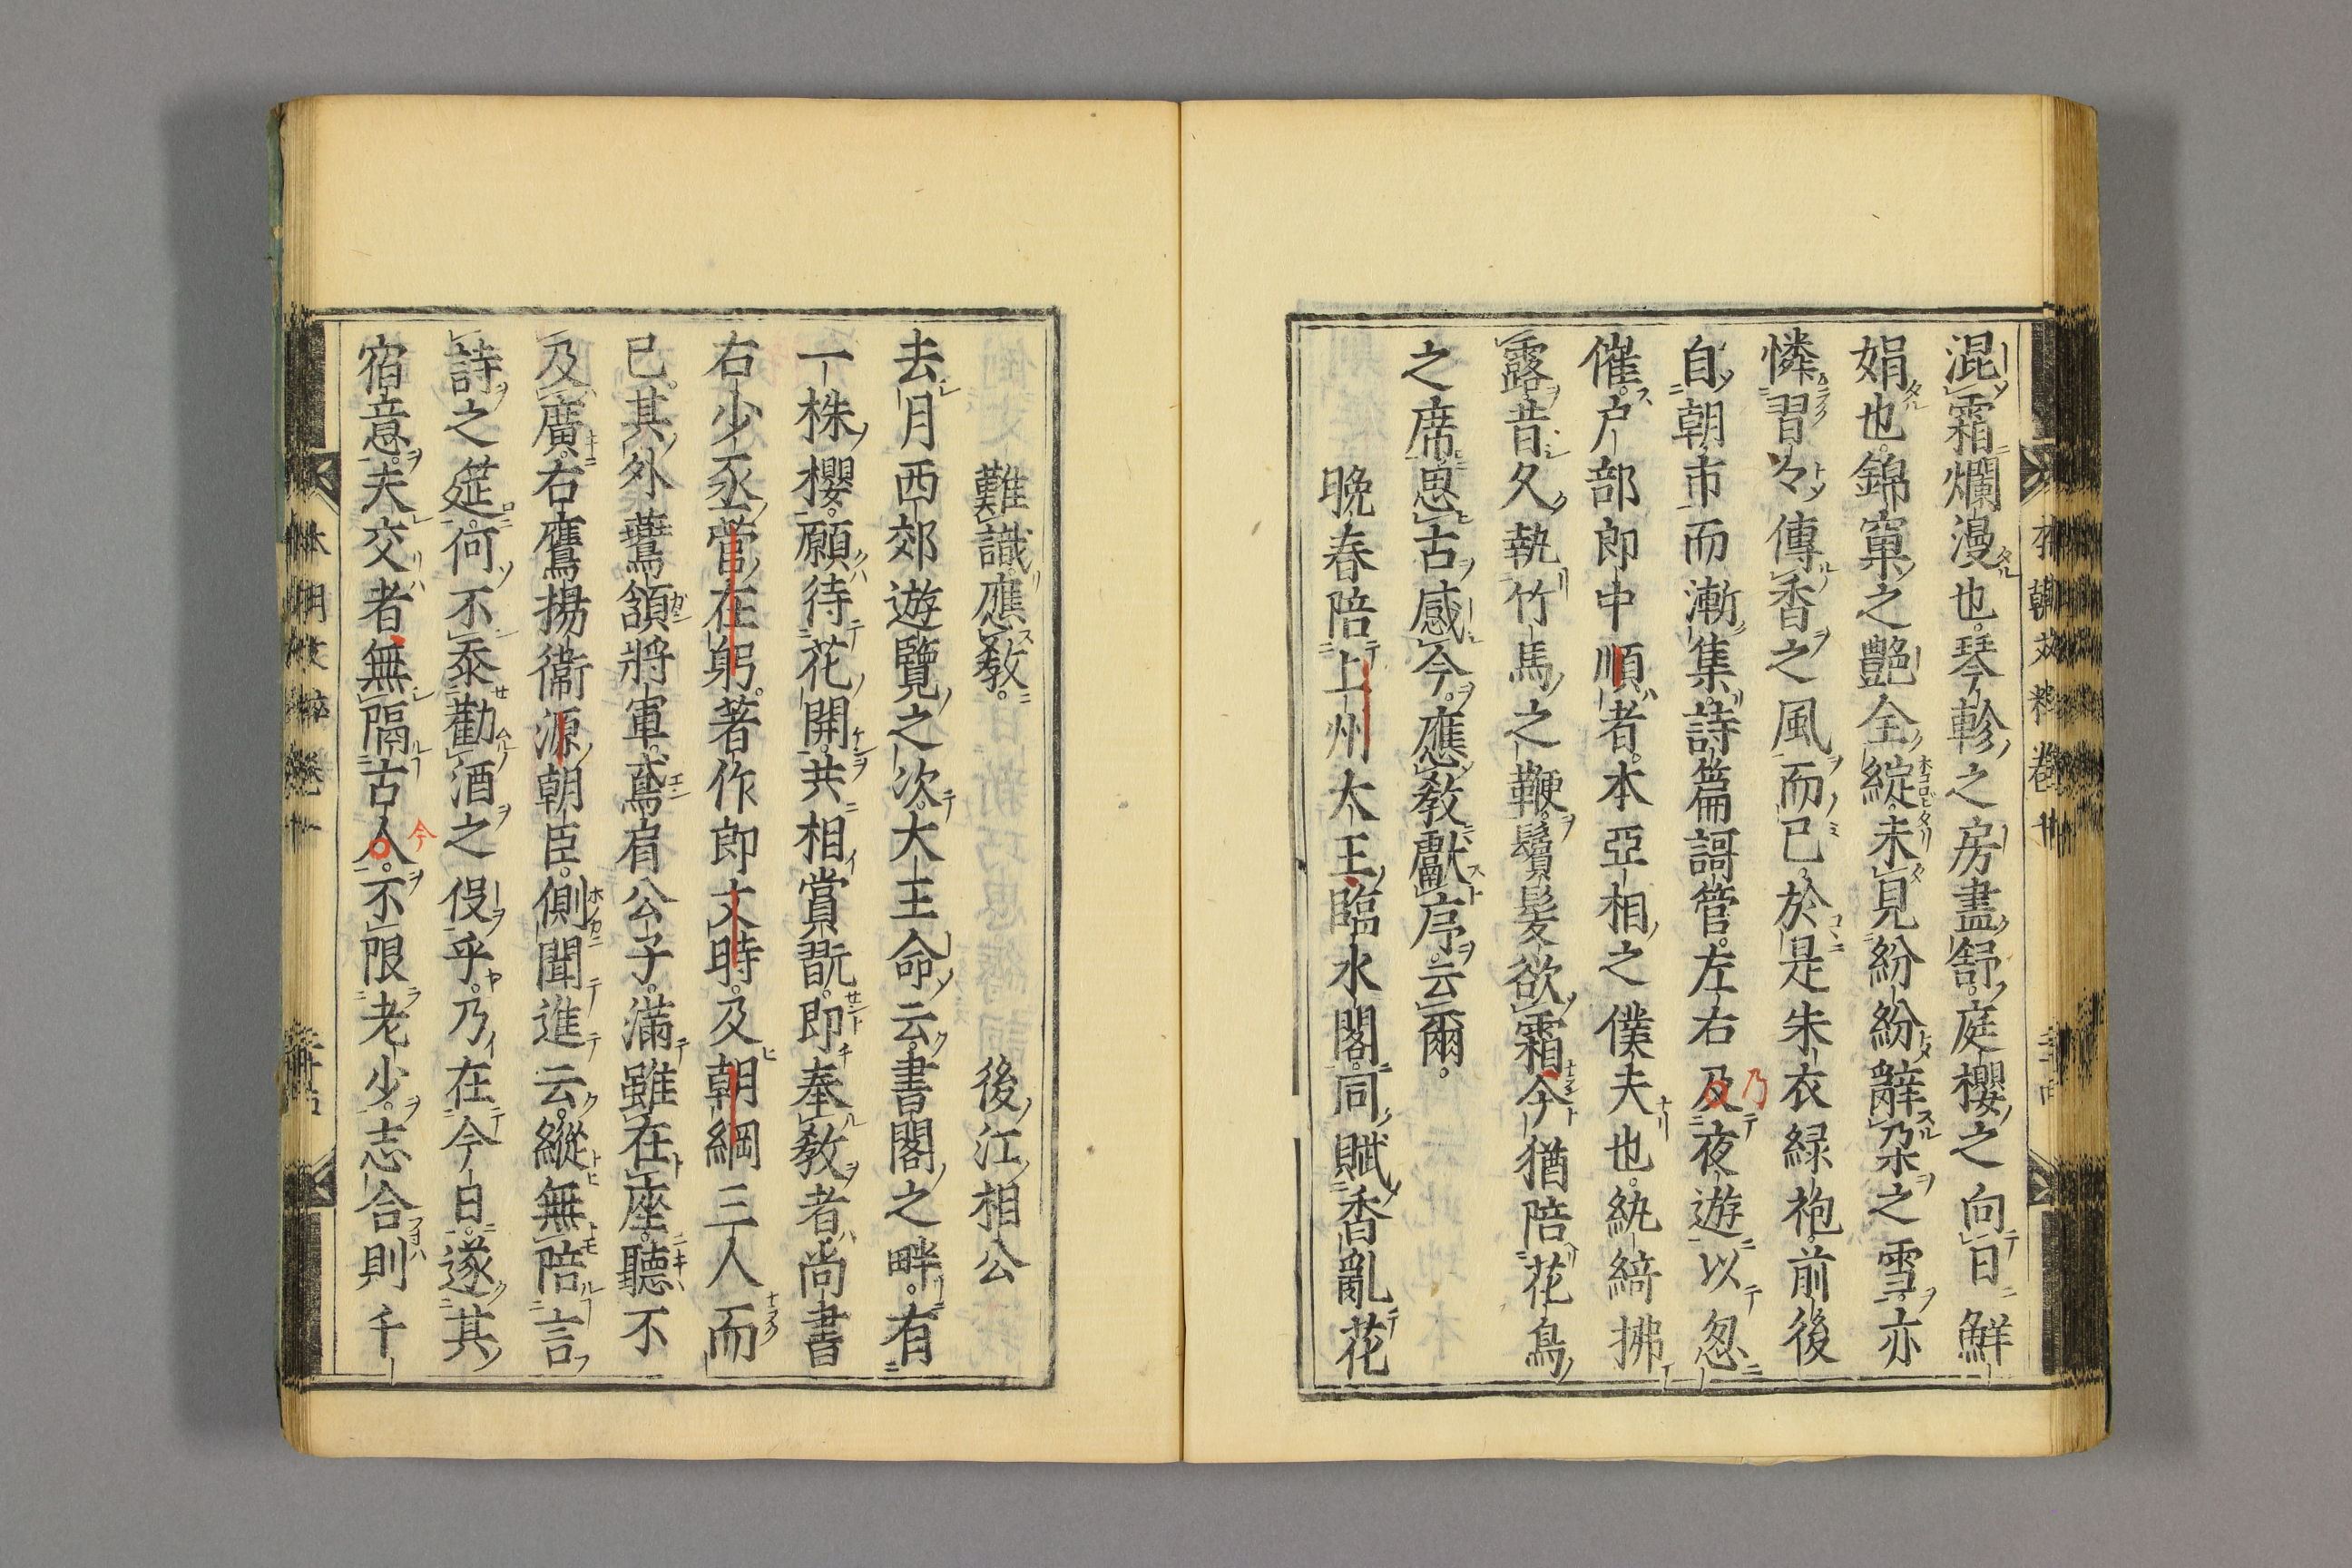 混霜爛漫也。琴軫之房盡舒。庭櫻之向日鮮
娟也。錦窠之艶全綻。未見紛紛辭朶之雪。亦
憐習々傳香之風而已。於是朱衣緑袍。前後
自朝市而漸集。詩篇謌管。左右及夜遊以忽
乃
催。戸部郎中順者。本亞相之僕夫也。紈綺拂
露。昔久執竹馬之鞭。鬢髮欲霜。今猶陪花鳥
之席。思古感今。應教獻序。云爾。
晩春陪上州大王臨水閣。同賦香亂花
難識。應教。 後江相公
去月西郊遊覽之次。大王命云。書閣之畔。有
一株櫻。願待花開。共相賞翫。即奉教者尚書
右少丞菅在躬。著作郎文時。及朝綱三人而
已。其外鷰頷將軍。鳶肩公子。滿座雖在。聽不
及廣。右鷹揚衞源朝臣。側聞進云。縱無陪言
詩之筵。何不忝勸酒之役乎。乃在今日。遂其
宿意。夫交者無隔古人。不限老少。志合則千
今